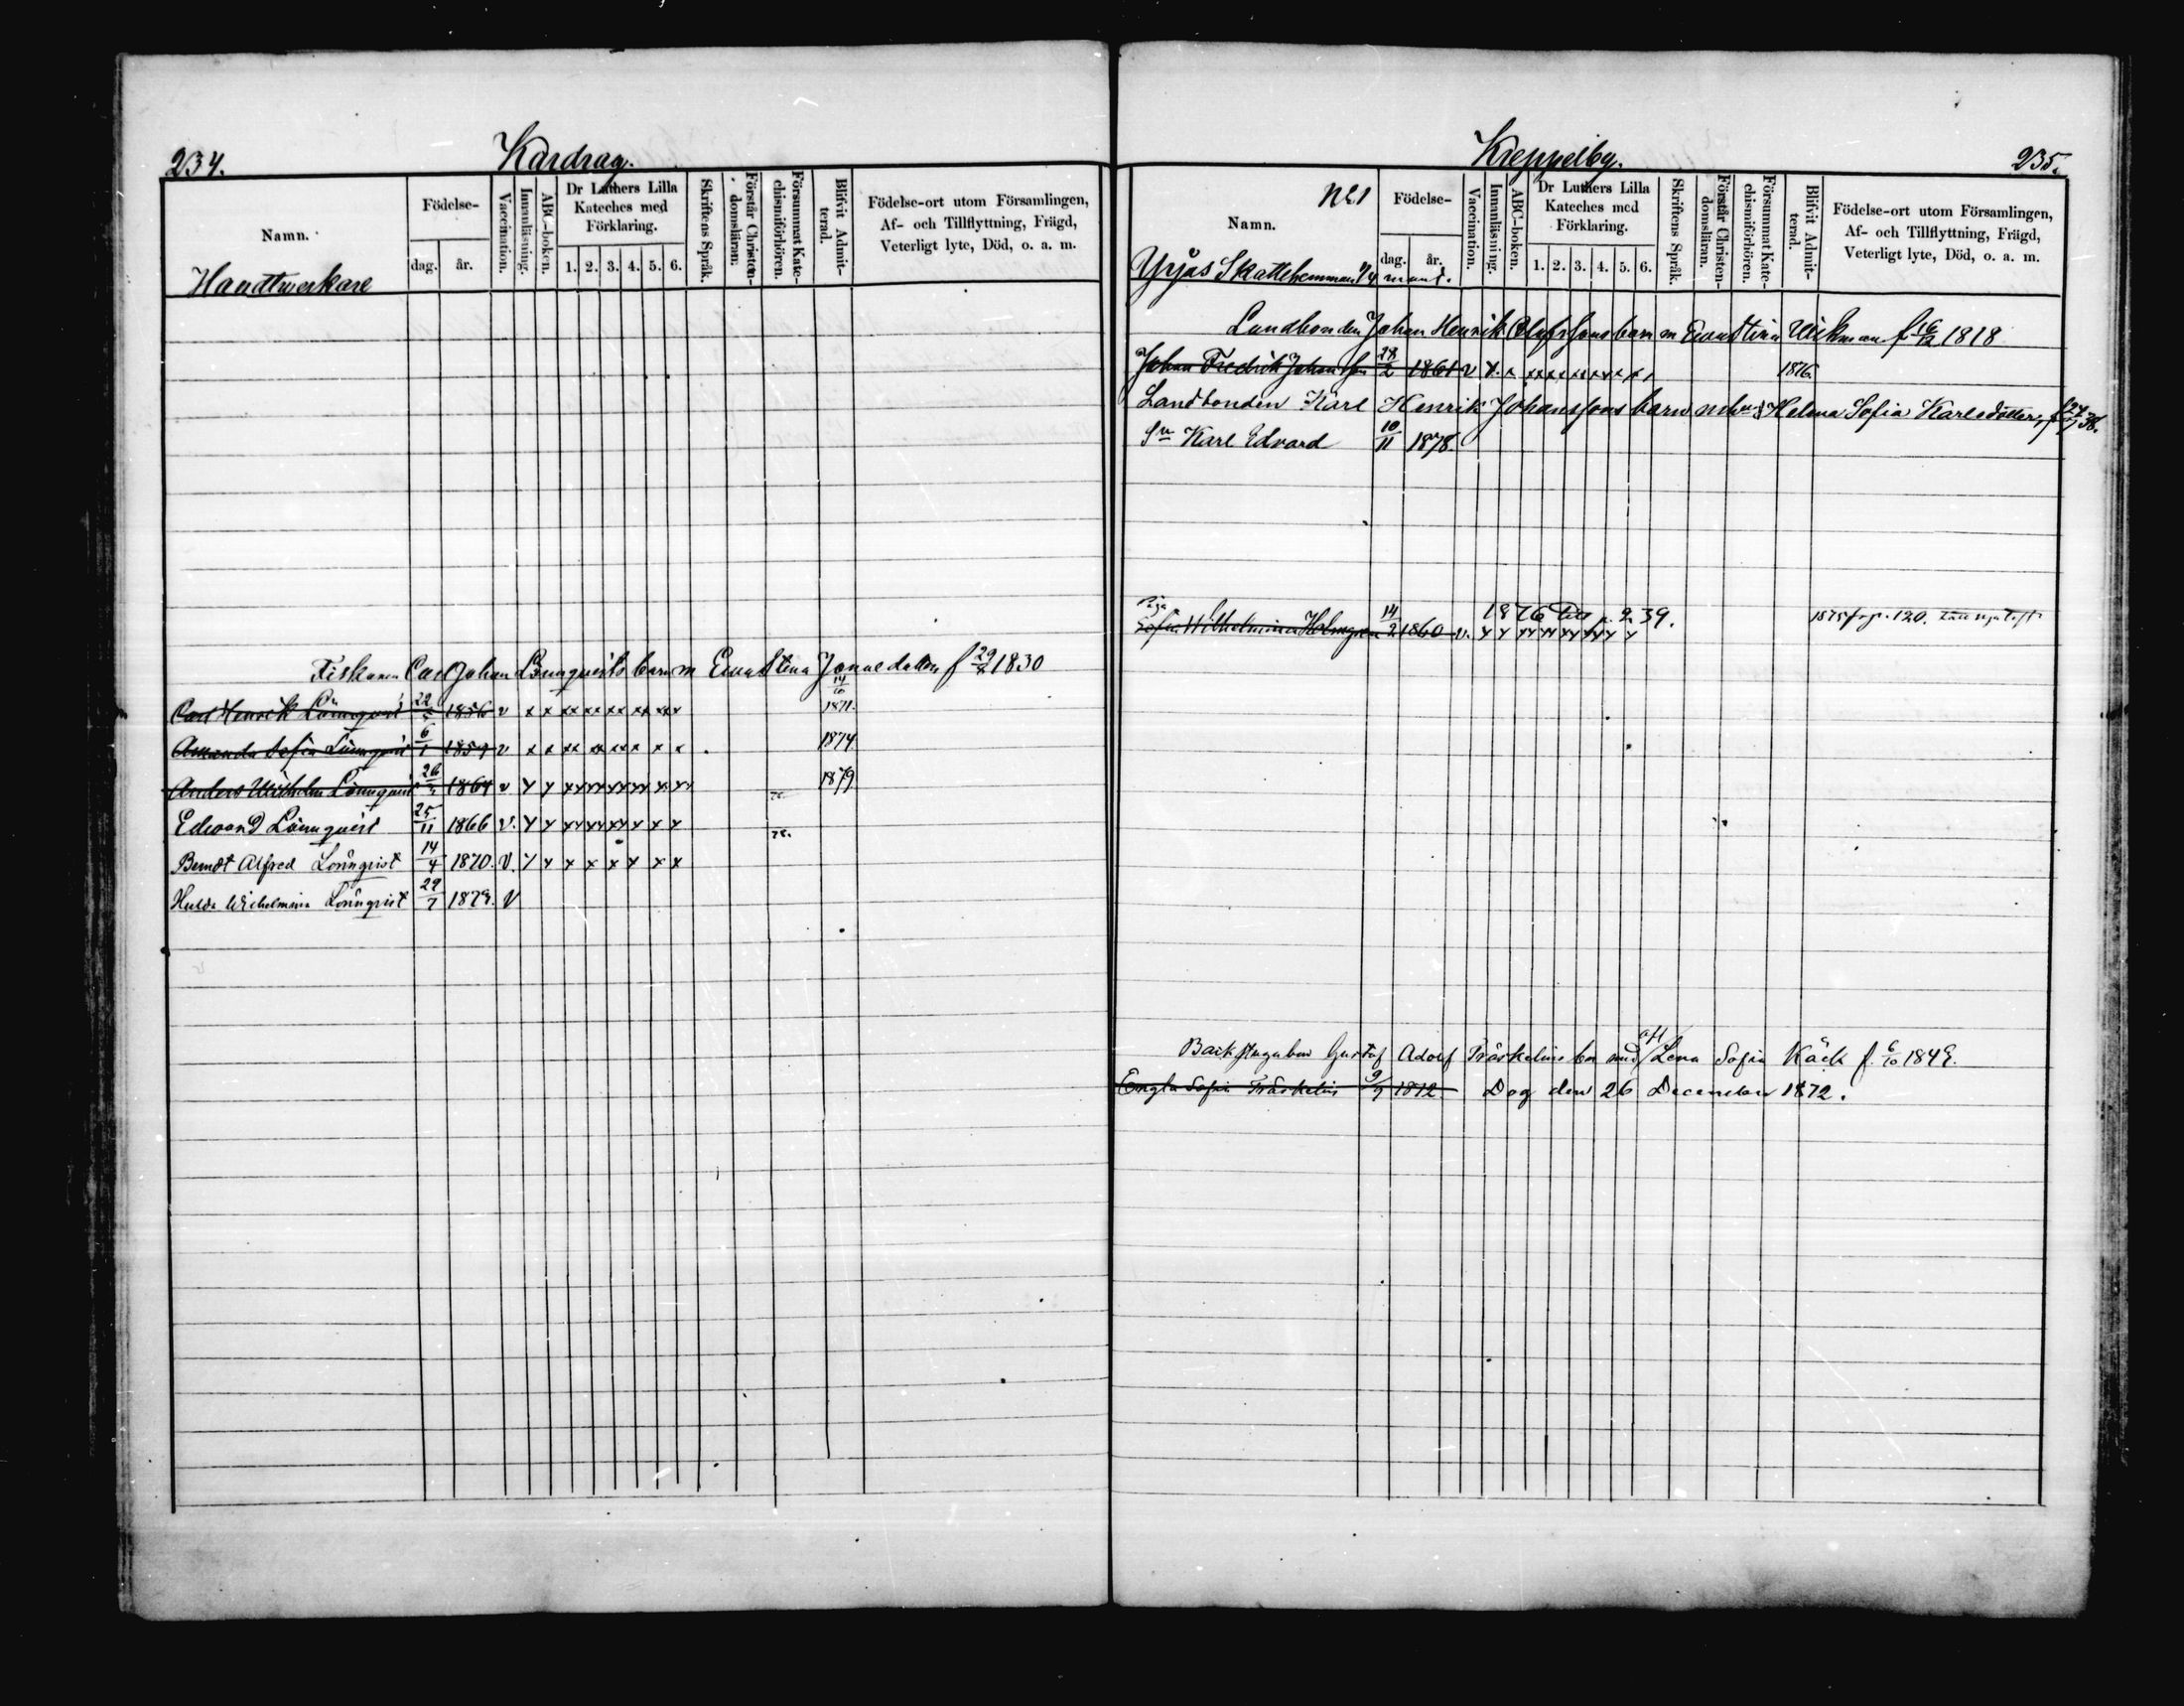 234.
Kårdrag.
Namn.
Födelse-
dag.
år.
Vaccination.
Innanläsning.
ABC-boken.
Dr Luthers Lilla
Kateches med
Förklaring.
1. 2. 3. 4. 5. 6.
Skriftens Språk.
Förstår Christen-
domsläran.
Försummat Kate-
chismiförhören.
Blifvit Admit-
terad.
Födelse-ort utom Församlingen,
Af- och Tillflyttning, Frägd,
Veterligt lyte, Död, o. a. m.
Handtwerkare
Fiskaren Carl Johan Lönnqvists barn m Eva Stina Jannsdotter f 29/8 1830
Carl Henrik Lönnqvist 22/5 1856 v x x xx xx xx xx xx 14/10 1871.
Amanda Sofia Lönnqvist 6/1 1859 v x x xx xx xxx x x 1874
Anders Wilhelm Lönnqvist 1864 v x x xx xx xx xx x xx 1879
Edvard Lönnqvist 25/11 1866 v. x x xx xx xx x x x
Berndt Alfred Lönnqvist 14/4 1870. v. x x x x x x x x
Hulda Wilhelmina Lönnqvist 29/7 1872. v
Kreppelby.
235.
No 1
Namn.
Födelse-
dag.
år.
Vaccination.
Innanläsning.
ABC-boken.
Dr Luthers Lilla
Kateches med
Förklaring.
1. 2. 3. 4. 5. 6.
Skriftens Språk.
Förstår Christen-
domsläran.
Försummat Kate-
chismiförhören.
Blifvit Admit-
terad.
Födelse-ort utom Församlingen,
Af- och Tillflyttning, Frägd,
Veterligt lyte, Död, o. a. m.
Yrjas Skattehemman 1/4 mant.
Landbonden Johan Henrik Olofssons barn m Eva Stina Wikman f 16/12 1818
Johan Fredrik Johansson 28/2 1861 v x. x xx xx xx xx x x 1876.
Landbonden Karl Henrik Johanssons barn m Helena Sofia Karlsdotter, f 38.
Sn Karl Edvard 10/11 1878.
Piga 1876 till p. 239. 1875 fr p. 120.
Sofia Wilhelmina Holmgren 14/2 1860 v. x x xx xx xx xx x
Backstugubon Gustaf Adolf Träskelins bn med afl Lena Sofia Käck f. 6/10 1849.
Engla Sofia Träskelin 9/7 1872. Dog den 26 December 1872.